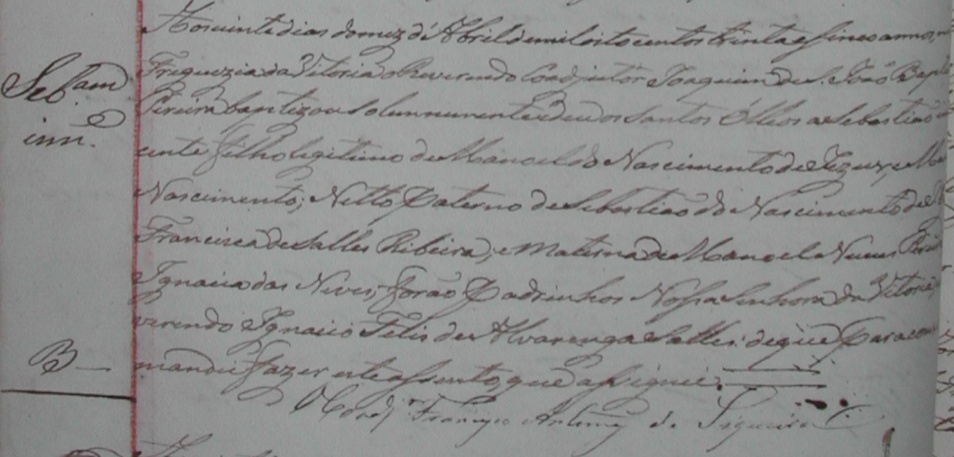 Aos vinte dias do mez d'Abril de mil oito centos trinta e sinco annos, n
Sebam Freguezia da Vitoria o Reverendo Coadjutor Joaquim de S. João Bap
inn.e Pereira baptizou solemnemente e deu os Santos Óleos a Sebastião
cente filho legitimo de Manoel do Nascimento de Jezus, e M
Nascimento; Netto Paterno de Sebastião do Nascimento de
Francisca de Salles Ribeira, e Materna de Manoel Nunes
Ignacia das Neves, forão Padrinhos Nossa Senhora da Vitoria,
verendo Ignacio Felis de Alvarenga Salles: de que para
B mandei fazer este assento, que assignei.
O Coadj.r Francisco Antonio de Siqueira